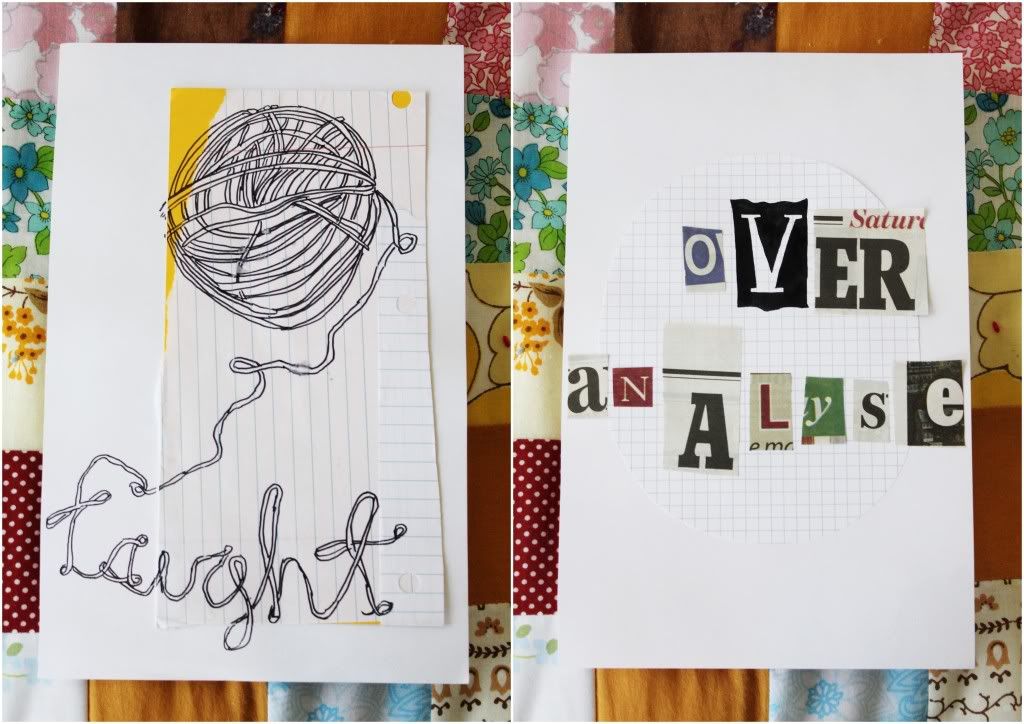 taught
Satur
OVER
aNALyse